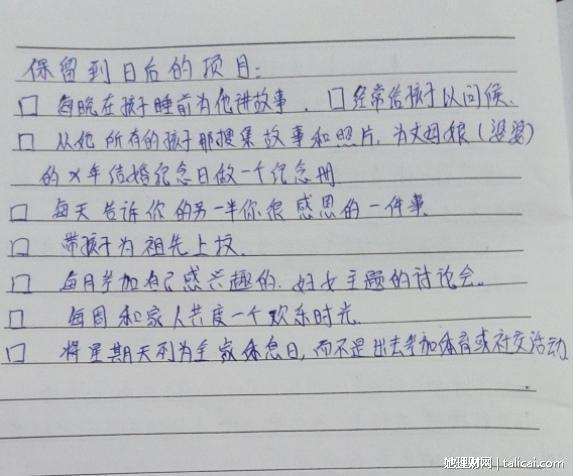 保留到日后的项目：
□ 每晚在孩子睡前为他讲故事. □ 经常给孩子以问候.
□ 从他所有的孩子那搜集故事和照片，为丈母娘（婆婆）
的X年结婚纪念日做一个纪念册
□ 每天告诉你的另一半你很感恩的一件事.
□ 带孩子为祖先上坟.
□ 每月参加自己感兴趣的、妇女主题的讨论会。
□ 每周和家人共度一个欢乐时光.
□ 将星期天列为全家休息日，而不是出去参加体育或社交活动
她理财网 | talicai.com